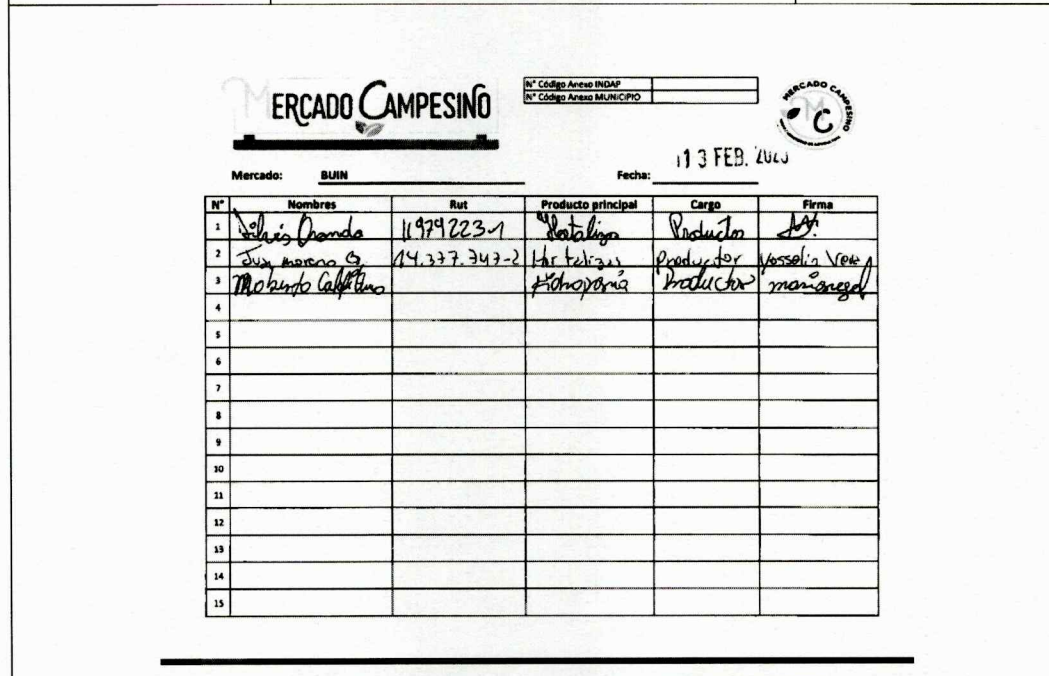 MERCADO CAMPESINO
N° Código Anexo INDAP
N° Código Anexo MUNICIPIO
MERCADO CAMPESINO
M C
Mercado: BUIN Fecha: 13 FEB.
N° Nombres Rut Producto principal Cargo Firma
1 11979223-1 Hortalizas Productor
2 Juan moreno 14.377.747-2 Hortalizas Productor Yosselin Vera
3 Hidroponia Productor
4
5
6
7
8
9
10
11
12
13
14
15